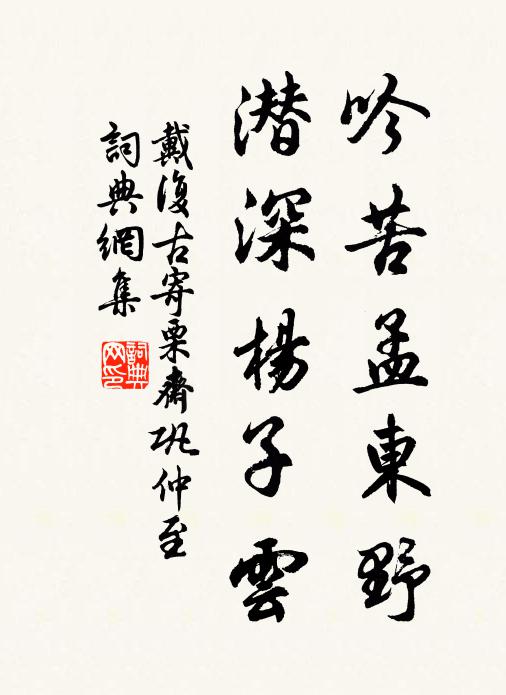 吟苦孟東野
潛深楊子雲
戴復古寄栗齋巩仲至
詞典網集
詞典網印